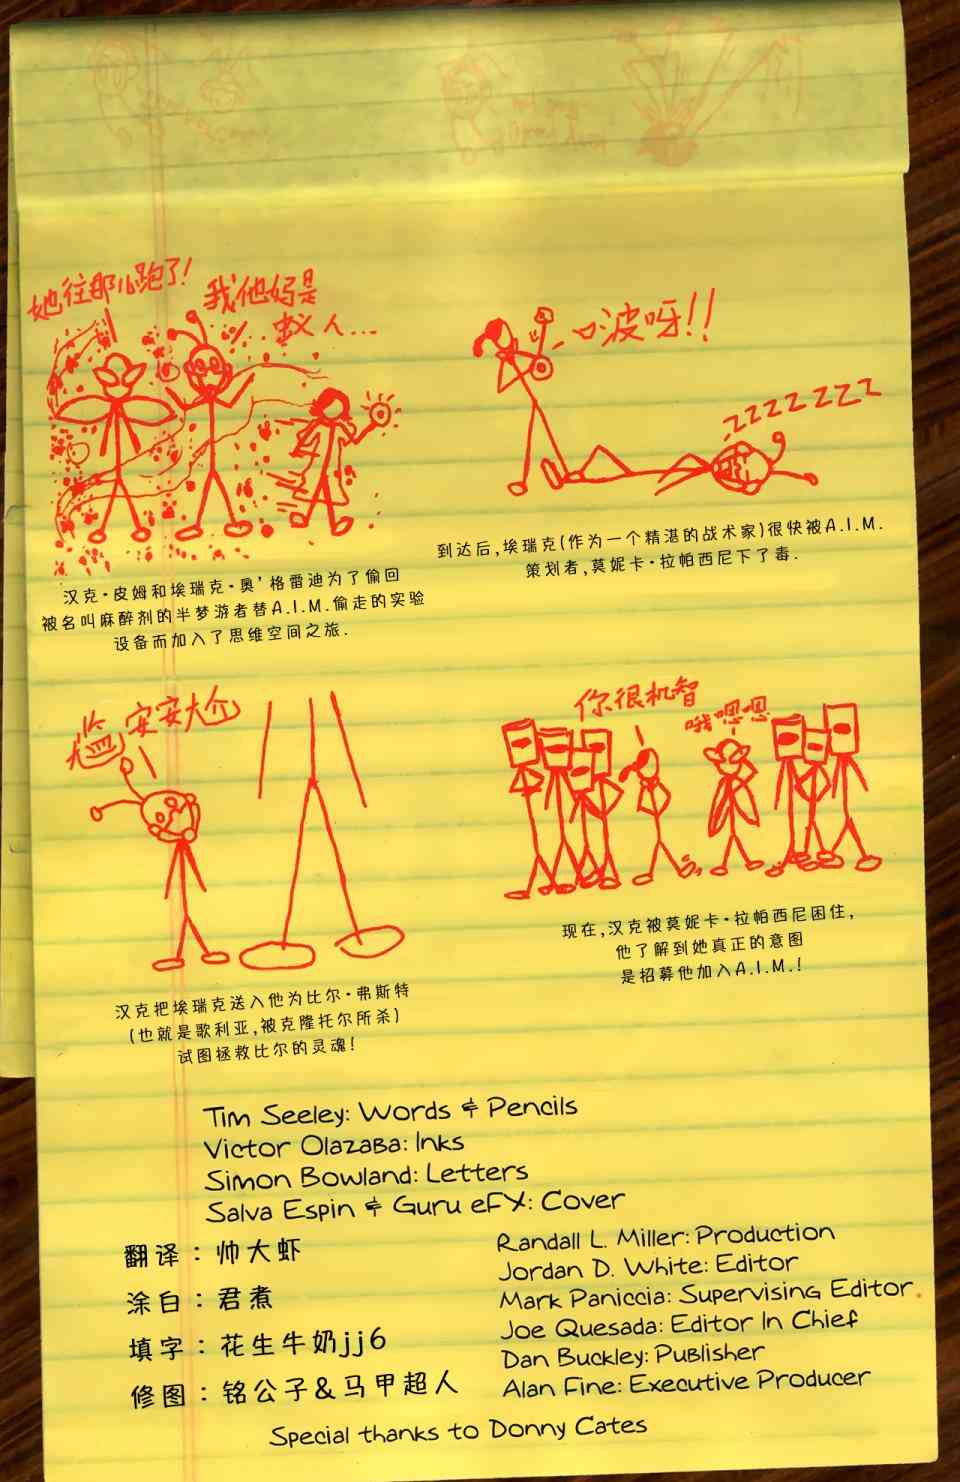 她往那儿跑了!
我他妈是
蚁人...
口波呀!!
ZZZZZZZ
汉克·皮姆和埃瑞克·奥'格雷迪为了偷回
被名叫麻醉剂的半梦游者替A.I.M.偷走的实验
设备而加入了思维空间之旅.
到达后,埃瑞克(作为一个精湛的战术家)很快被A.I.M.
策划者,莫妮卡·拉帕西尼下了毒.
尴安安大尬
你很机智
哦嗯嗯
汉克把埃瑞克送入他为比尔·弗斯特
(也就是歌利亚,被克隆托尔所杀)
试图拯救比尔的灵魂!
现在,汉克被莫妮卡·拉帕西尼困住,
他了解到她真正的意图
是招募他加入A.I.M.!
Tim Seeley: Words & Pencils
Victor Olazaba: Inks
Simon Bowland: Letters
Salva Espin & Guru eFX: Cover
翻译：帅大虾
涂白：君煮
填字：花生牛奶jj6
修图：铭公子&马甲超人
Randall L. Miller: Production
Jordan D. White: Editor
Mark Paniccia: Supervising Editor
Joe Quesada: Editor In Chief
Dan Buckley: Publisher
Alan Fine: Executive Producer
Special thanks to Donny Cates